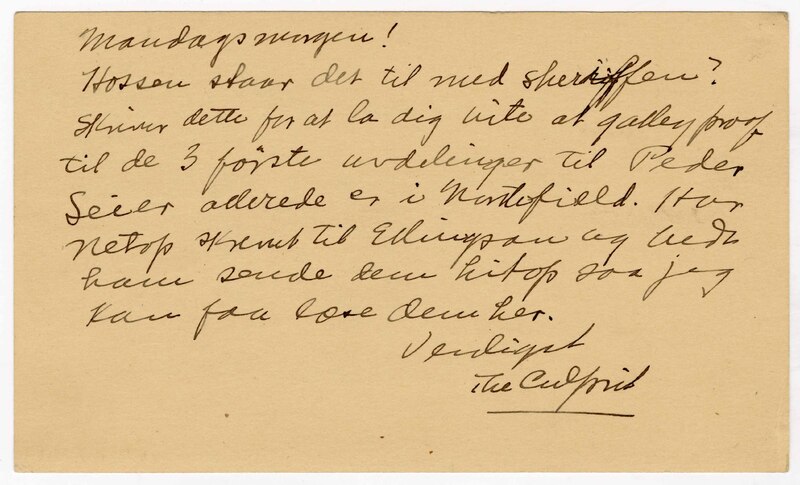 Mandagsmorgen!
Hossen staar det til med sheriffen?
Skriver dette for at la dig vite at galley proof
til de 3 første avdelinger til Peder
Seier allerede er i Northfield. Har
netop skrevet til Ellingson og bedt
ham sende dem hitop saa jeg
kan faa læse dem her.
Verdigst
The Culprit